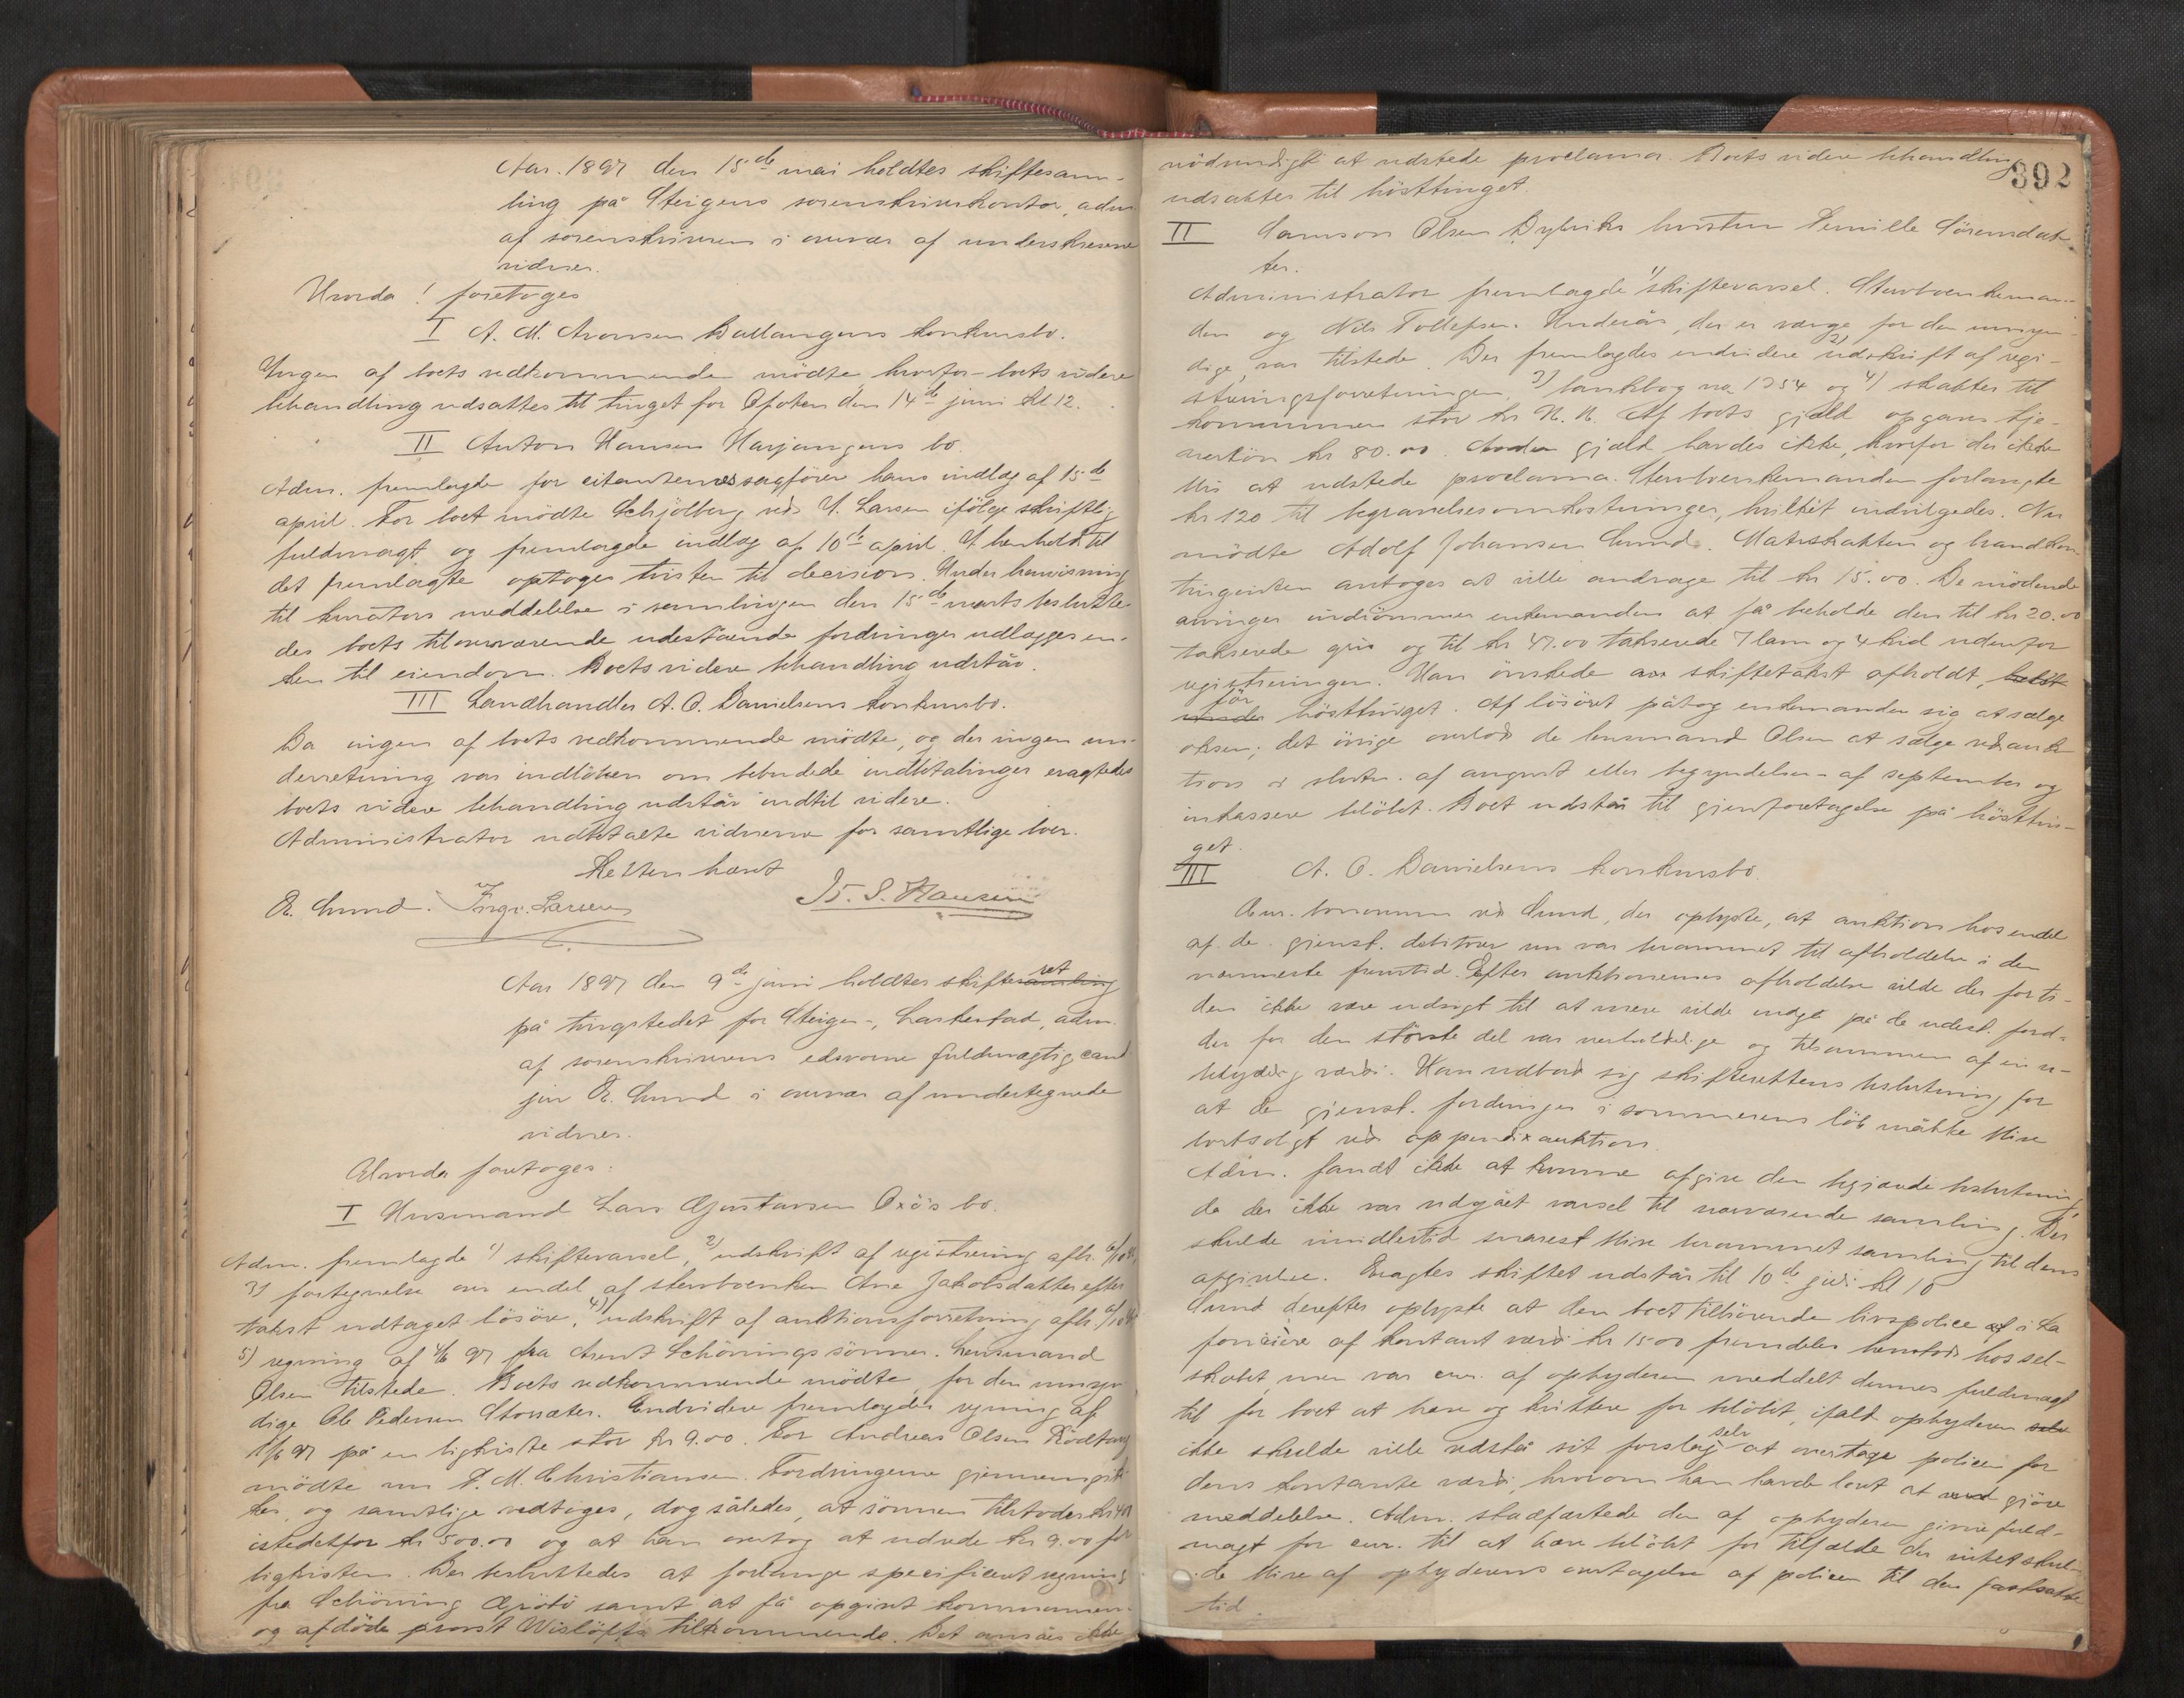 Aar. 1897 den 15de mai holdtes skiftesam-
ling på Steigens sorenskriverkontor, adm.
af sorenskriveren i overvær af underskrevne
vidner.
Hvorda! foretoges
I A. M. Aronsen Ballangens konkursbo.
Ingen af boets vedkommende mödte, hvorfor boets videre
behandling udsattes til tinget for Ofoten den 14de juni kl 12.
II Anton Hansen Harjangens bo.
Adm. fremlagde for citanternes sagförer hans indlæg af 15de
april. For boet mödte Schjölberg ved I. Larsen ifölge skriftlig
fuldmagt og fremlagde indlæg af 10de april. I henhold til
det fremlagte optoges tvisten til decision. Under henvisning
til kurators meddelelse i samlingen den 15de marts beslutte-
des boets tiloversværende udestående fordringer udlægges en-
ken til eiendom. Boets videre behandling udstår.
III Landhandler A. O. Danielsens konkursbo.
Da ingen af boets vedkommende mödte, og der ingen un-
derretning var indlöben om bebudede indbetalinger eragtedes
boets videre behandling udstår indtil videre.
Administrator udbetalte vidnerne for samtlige boer.
Retten hævet
E. Lund. Ingv. Larsen H. S. Hansen
Aar 1897 den 9de juni holdtes skiftesamling ret
på tingstedet for Steigen, Laskestad, adm.
af sorenskriverens edsvorne fuldmægtig cand
jur E. Lund i overvær af undertegnede
vidner.
Hvorda foretoges:
I Husmand Lars Gustavsen Oxö's bo.
Adm. fremlagde 1) skiftevarsel, 2) udskrift af registrering afh.
3) fortegnelse over endel af stervboenken Ane Jakobsdatter efter
takst udtaget lösöre, 4) udskrift af auktionsforretning afh.
5) regning af 97 fra Arent Schönings sönner. Lensmand
Olsen tilstede. Boets vedkommende mödte, for den umyn-
dige Ole Pedersen Storsæter. Endvidere fremlagdes regning af
97 på en ligkiste stor kr 9.00. For Andreas Olsen
mödte nu P. M. Christiansen. Fordringerne gjennemgik-
kes, og samtlige vedtoges, dog således, at sönnen tilstodes kr
istedetfor kr 500.00 og at han overtog at udrede kr 9.00 for
ligkisten. Der besluttedes at forlange specificeret regning
fra Schöning Grötö samt at få opgivet kommunen
og afdöde provst Wislöffs tilkommende. Det ansåes ikke
392
nödvendigt at udstede proclama. Boets videre behandling
udsattes til hösttinget.
II Samson Olsen Dybviks hustru Pernille Sörensdat-
ter.
Administrator fremlagde 1) skiftevarsel. Stervboenkeman-
den og Nils Tollefsen Underås, der er værge for den umyn-
dige, var tilstede. Der fremlagdes endvidere 2) udskrift af regi-
streringsforretningen, 3) bankbog no 1254 og 4) skatter til
kommunen stor kr N. N. Af boets gjæld opgaves tje-
nerlön kr 80.00. Anden gjæld havdes ikke, hvorfor der ikke
blir at udstede proclama. Stervboenkemanden forlangte
kr 120 til begravelsesomkostninger, hvilket indvilgedes. Nu
mödte Adolf Johansen Lund. Matrskatten og brandkon-
tingenten antoges at ville andrage til kr 15.00. De mödende
arvinger indrömmer enkemanden at få beholde den til kr 20.00
takserede gris og til kr 47.00 takserede 7 lam og 4 kid udenfor
registreringen. Han önskede skiftetakst afholdt, helst
under för hösttinget. Af lösöret påtog enkemanden sig at sælge
oksen; det övrige overlod de lensmand Olsen at sælge ved auk-
tion i slutn. af august eller begyndelsen af september og
inkassere belöbet. Boet udstår til gjenforetagelse på hösttin-
get.
III A. O. Danielsens konkursbo
Cur. bonorum ved Lund, der oplyste, at auktion hos endel
af de gjenst. debitorer nu var berammet til afholdelse i den
nærmeste fremtid. Efter auktionernes afholdelse vilde der forti-
den ikke være udsigt til at mere vilde indgå på de udest. ford.
der for den störste del var uerholdelige og tilsammen af en u-
betydelig værdi. Han udbad sig skifterettens beslutning for
at de gjenst. fordringer i sommerens löb måtte blive
bortsolgt ved appendixauktion.
Adm. fandt ikke at kunne afgive den begjærede beslutning,
da der ikke var udgået varsel til nærværende samling. Der
skulde imidlertid snarest blive berammet samling til dens
afgivelse. Eragtes skiftet udstår til 10de juli kl 10
Lund derefter oplyste at den boet tilhörende livspolice i La
fonciere af kontant værdi kr 1500 fremdeles henstod hos sel-
skabet, men var cur. af opbyderen meddelt dennes fuldmagt
til for boet at hæve og kvittere for belöbet, ifald opbyderen selv
ikke skulde ville vedstå sit forslag selv at overtage policen for
dens kontante værdi, hvorom han havde lovt at gjöre
meddelelse. Adm. stadfæstede den af opbyderen givne fuld-
magt for cur. til at hæve belöbet for tilfælde der intet skul-
de blive af opbyderens overtagelse af policen til den fastsatte
tid.